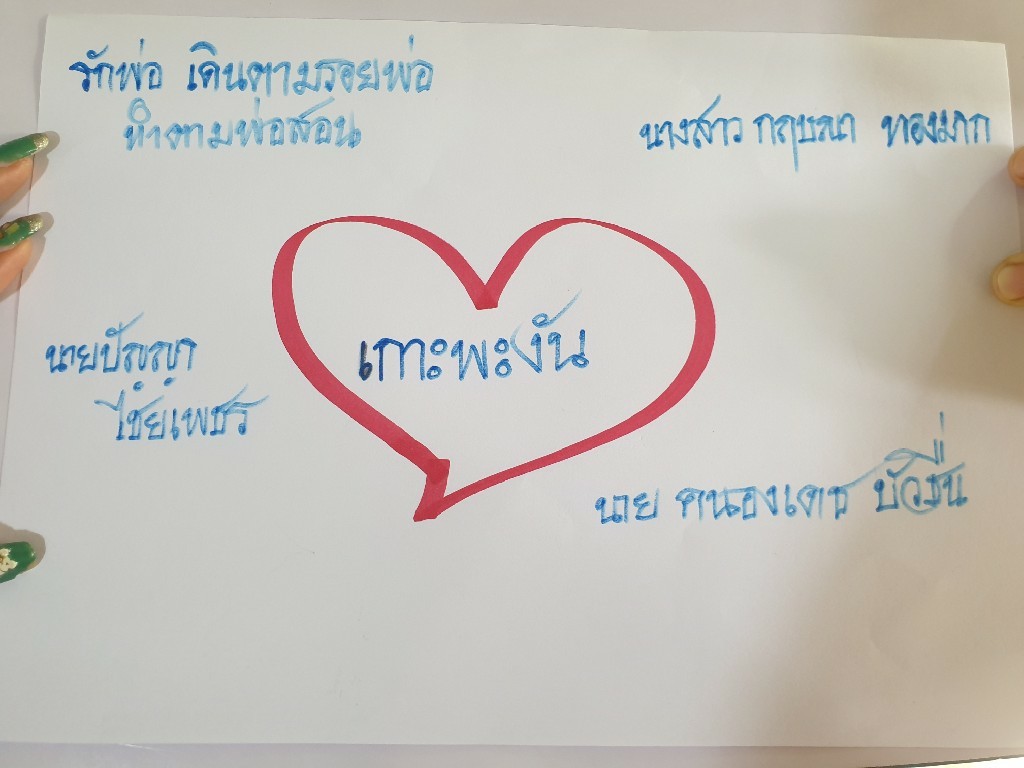 รักพ่อ เดินตามรอยพ่อ
ทำตามพ่อสอน
นางสาว กฤษณา ทองมาก
เกาะพะงัน
นายปัญญา
ไชยเพชร
นาย คนองเดช บัวชื่น